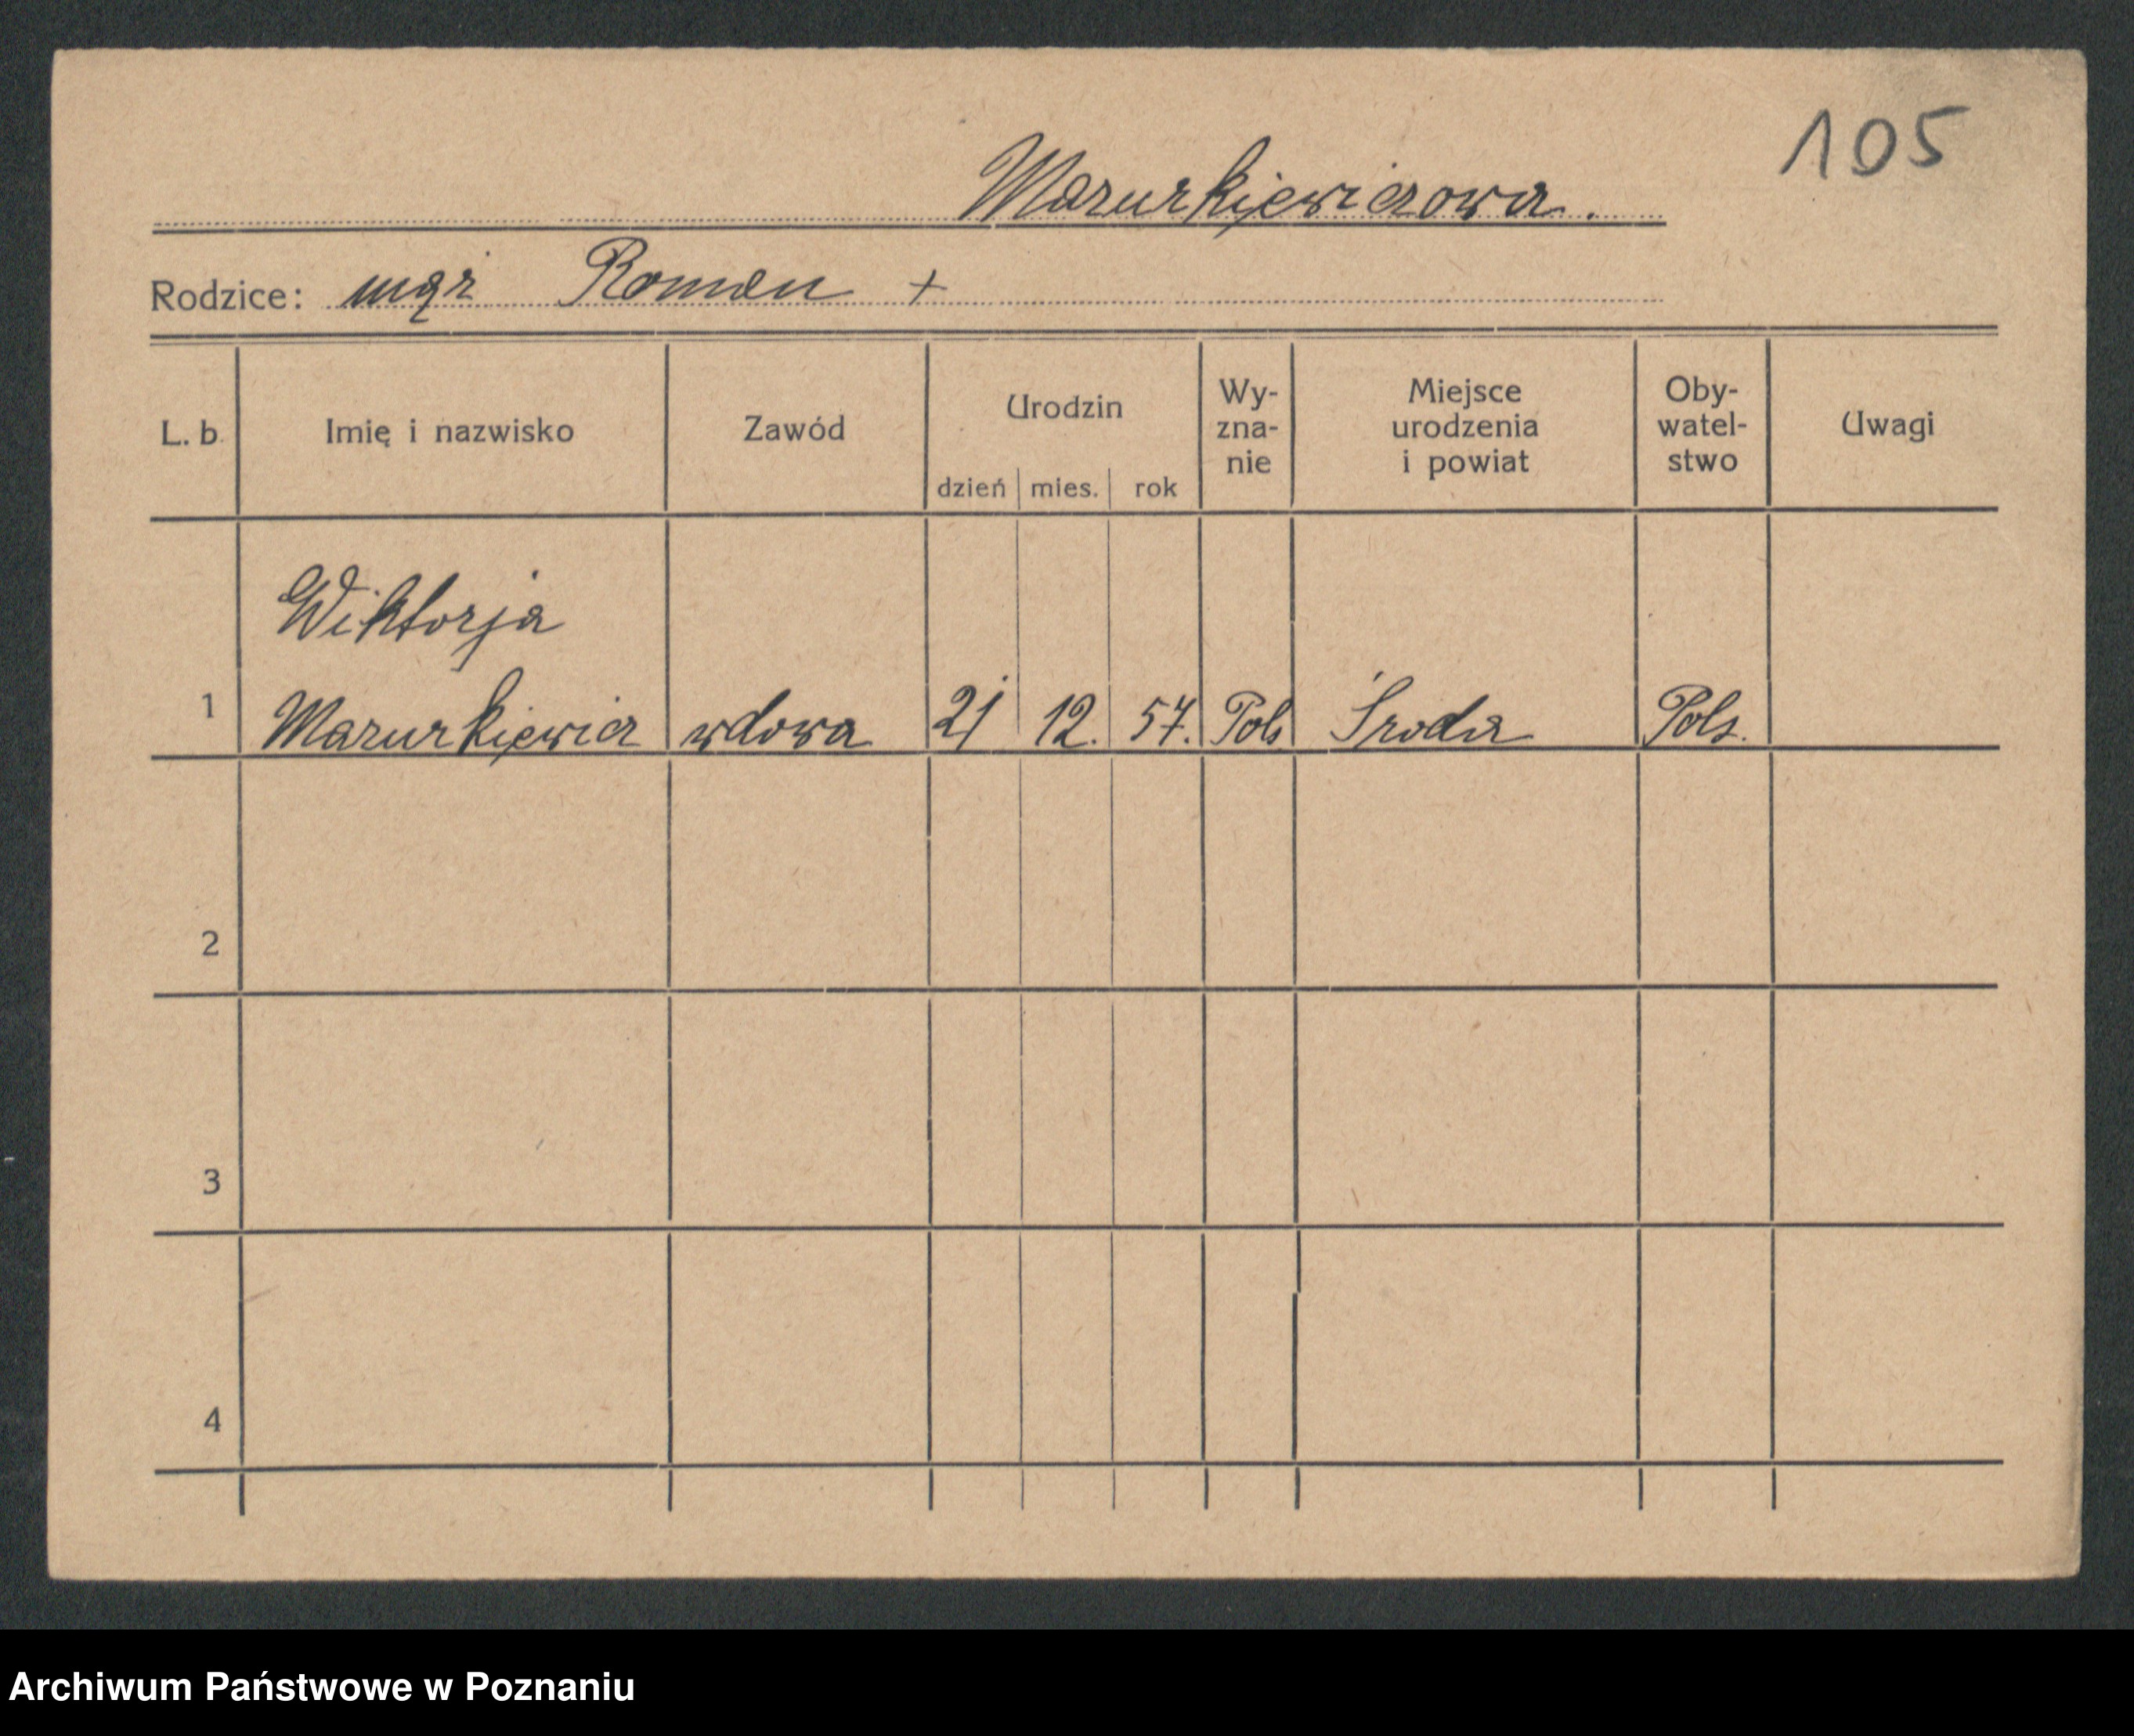 105
Mazurkiewiczowa.
Rodzice: mąż Roman +
L. b. Imię i nazwisko Zawód Urodzin dzień mies. rok Wy-zna-nie Miejsce urodzenia i powiat Oby-watel-stwo Uwagi
Wiktorja
1 Mazurkiewicz wdowa 21 12. 57. Pols Środa Pols.
2
3
4
Archiwum Państwowe w Poznaniu